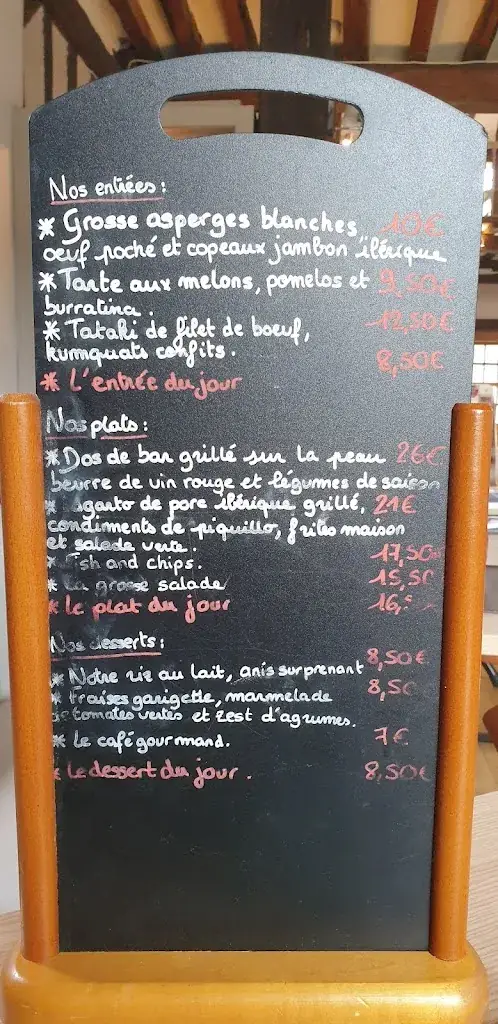 Nos entrées :
* Grosse asperges blanches, 10€
oeuf poché et copeaux jambon ibérique
* Tarte aux melons, pomelos et 9,50€
burratina.
* Tataki de filet de boeuf, 12,50€
kumquats confits.
* L'entrée du jour 8,50€
Nos plats :
* Dos de bar grillé sur la peau 26€
beurre de vin rouge et légumes de saison
* Lagarto de porc ibérique grillé, 21€
condiments de piquillo, frites maison
et salade verte.
* Fish and chips. 17,50
* La grosse salade 15,50
* Le plat du jour 16,
Nos desserts :
* Notre riz au lait, anis surprenant 8,50€
* Fraises garigette, marmelade 8,50
de tomates vertes et zest d'agrumes.
* Le café gourmand. 7€
* Le dessert du jour. 8,50€